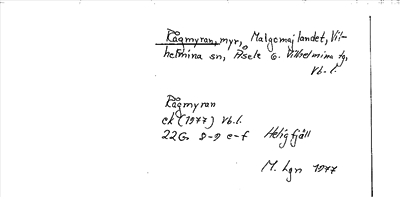 Rågmyran, myr, Malgomajlandet, Vil-
helmina sn, Åsele o. Vilhelmina tg,
Vb. l.
Rågmyran
ek (1977) Vb. l.
22G 8-9 e-f Heligfjäll
M. Lgn 1977